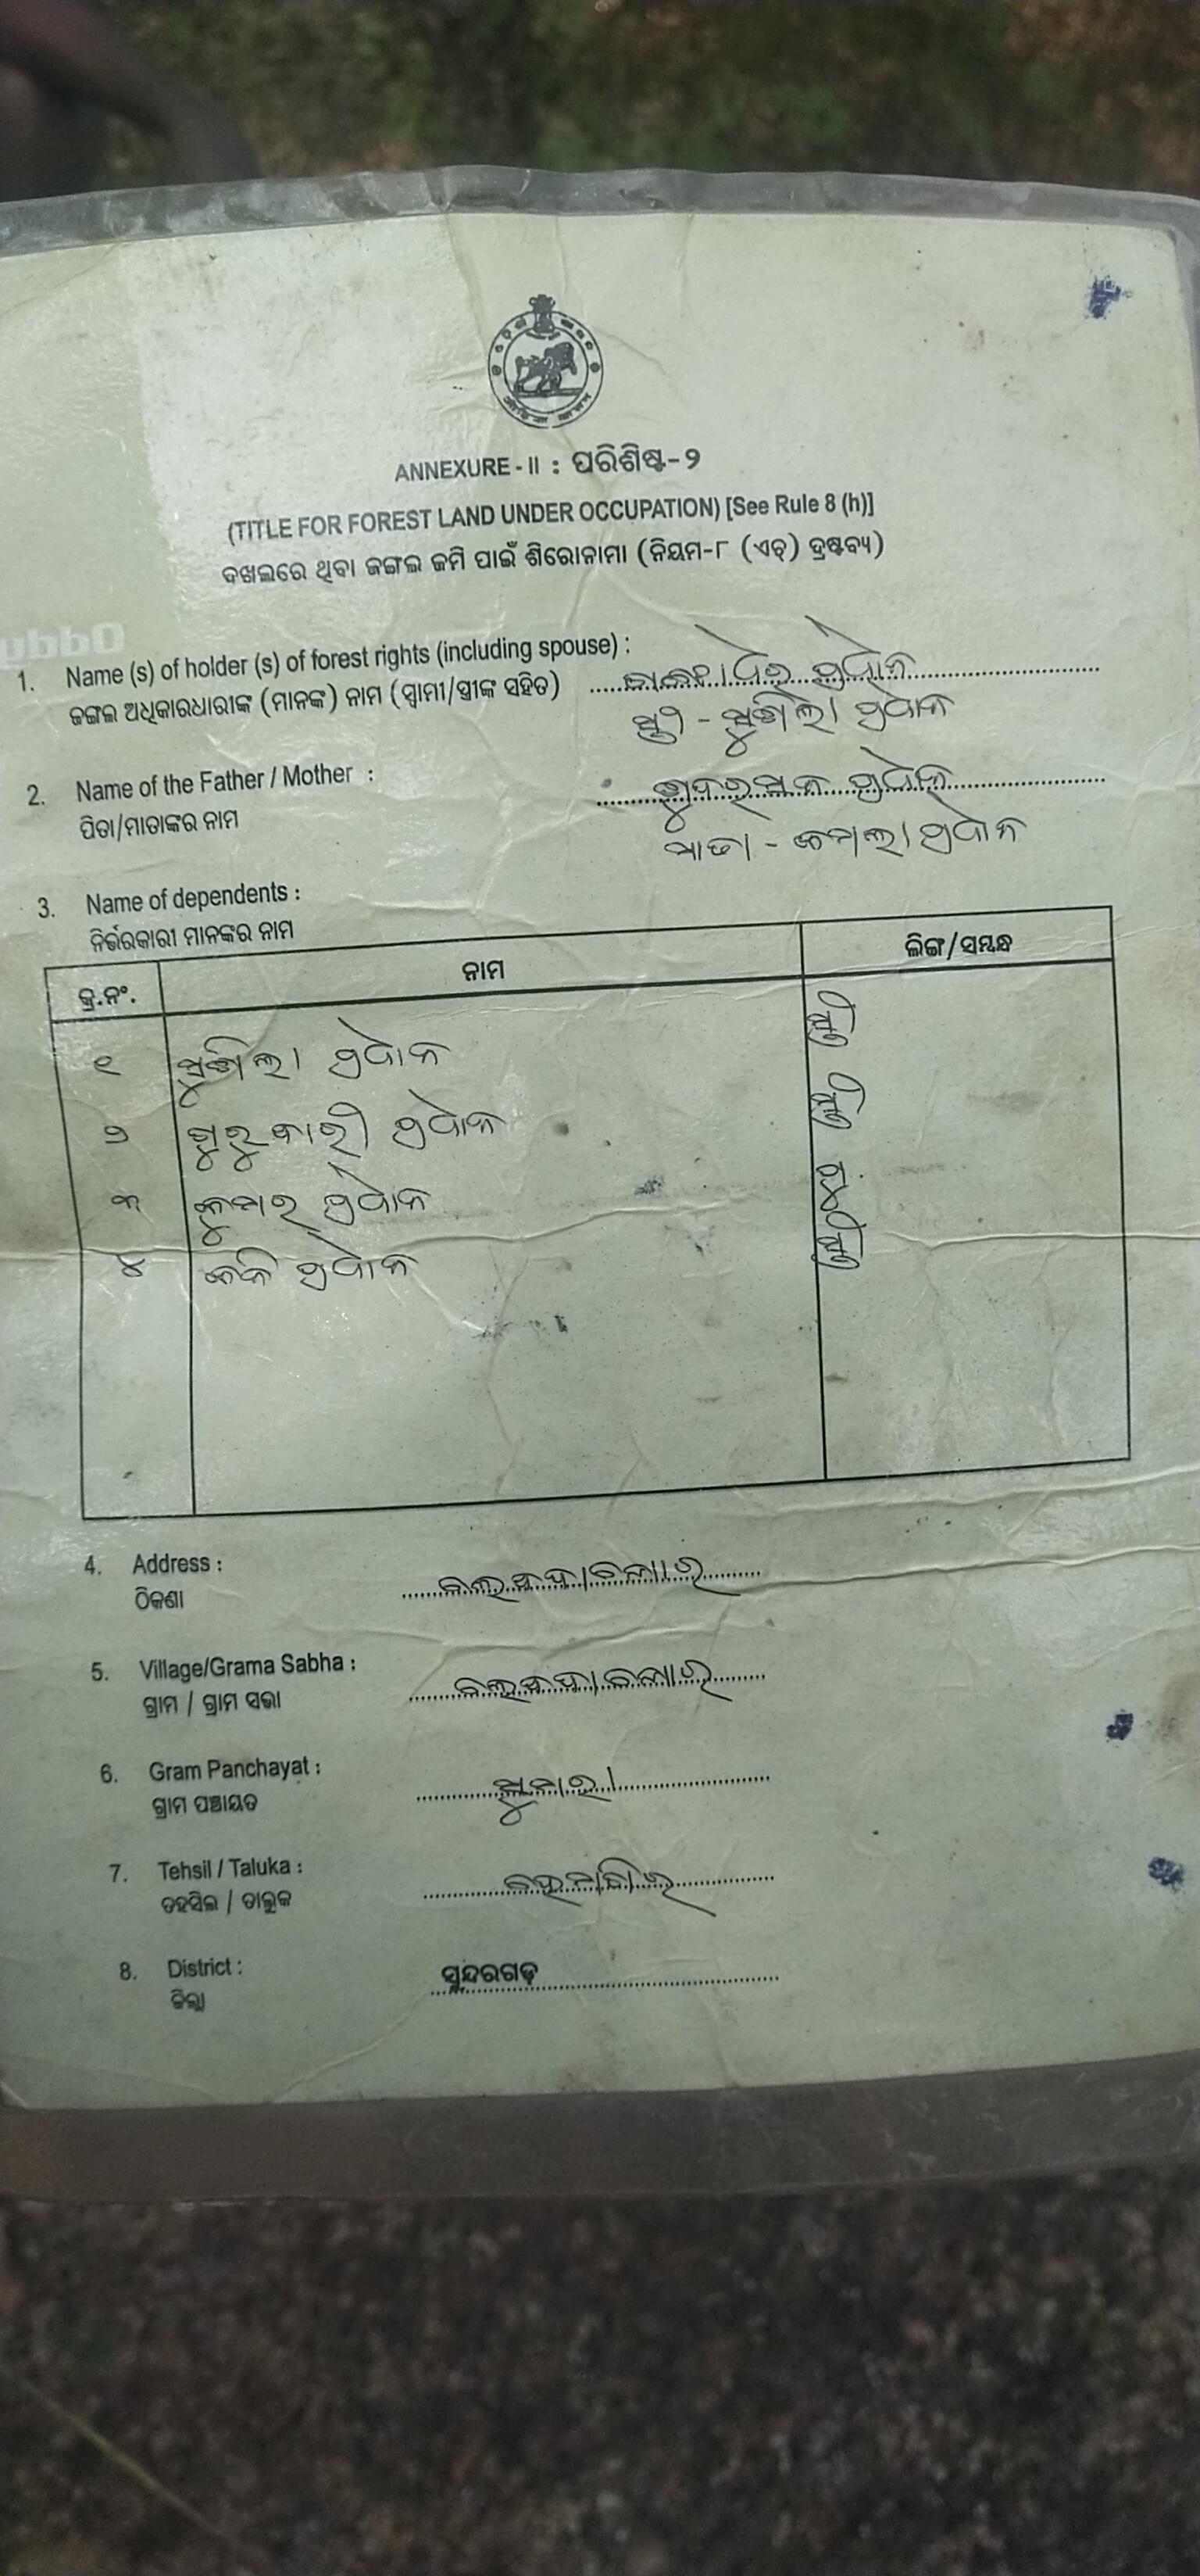 ANNEXURE - II : ପରିଶିଷ୍ଟ-୨
(TITLE FOR FOREST LAND UNDER OCCUPATION) [See Rule 8 (h)]
ଦଖଲରେ ଥିବା ଜଙ୍ଗଲ ଜମି ପାଇଁ ଶିରୋନାମା (ନିୟମ-୮ (ଏଚ୍) ଦ୍ରଷ୍ଟବ୍ୟ)
1. Name (s) of holder (s) of forest rights (including spouse) : ପ୍ରଧାନ
ଜଙ୍ଗଲ ଅଧିକାରଧାରୀଙ୍କ (ମାନଙ୍କ) ନାମ (ସ୍ୱାମୀ/ସ୍ତ୍ରୀଙ୍କ ସହିତ)
ସ୍ତ୍ରୀ - ସୁଶିଲା ପ୍ରଧାନ
2. Name of the Father / Mother : ପ୍ରଧାନ
ପିତା/ମାତାଙ୍କର ନାମ
ମାତା - କମଲା ପ୍ରଧାନ
3. Name of dependents :
ନିର୍ଭରକାରୀ ମାନଙ୍କର ନାମ
କ୍ର.ନଂ. ନାମ ଲିଙ୍ଗ/ସମ୍ବନ୍ଧ
୧ ସୁଶିଲା ପ୍ରଧାନ ସ୍ତ୍ରୀ
୨ ଗୁରୁବାରୀ ପ୍ରଧାନ ସ୍ତ୍ରୀ
୩ କୁମାର ପ୍ରଧାନ ପୁଂ
୪ ପ୍ରଧାନ ସ୍ତ୍ରୀ
4. Address :
ଠିକଣା
5. Village/Grama Sabha :
ଗ୍ରାମ / ଗ୍ରାମ ସଭା
6. Gram Panchayat :
ଗ୍ରାମ ପଞ୍ଚାୟତ
7. Tehsil / Taluka :
ତହସିଲ / ତାଲୁକ
8. District : ସୁନ୍ଦରଗଡ଼
ଜିଲ୍ଲା